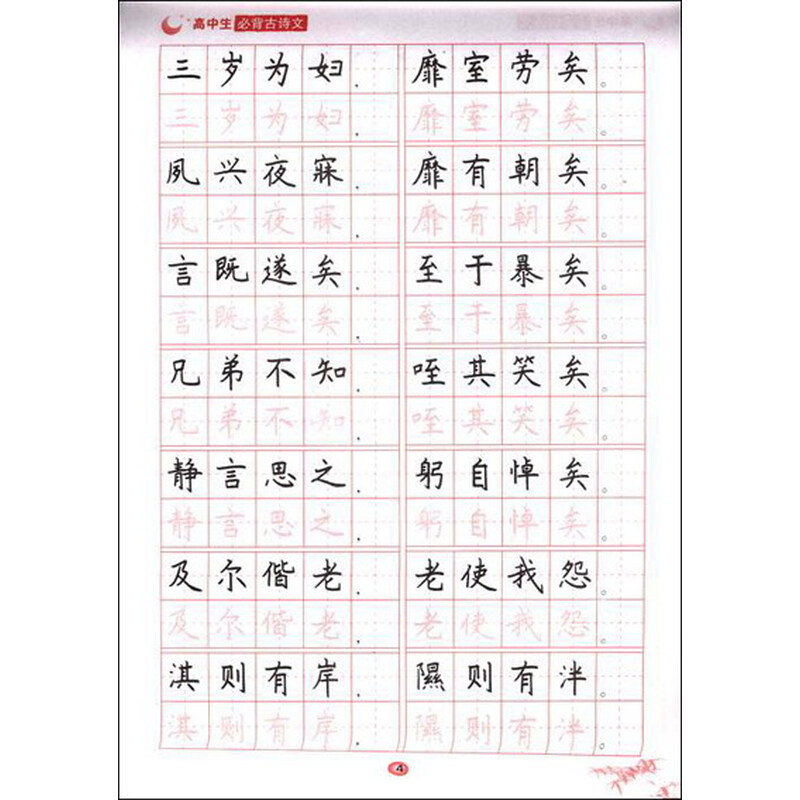 高中生 必背古诗文
三岁为妇， 靡室劳矣。
三岁为妇， 靡室劳矣。
夙兴夜寐， 靡有朝矣。
夙兴夜寐， 靡有朝矣。
言既遂矣， 至于暴矣。
言既遂矣， 至于暴矣。
兄弟不知， 咥其笑矣。
兄弟不知， 咥其笑矣。
静言思之， 躬自悼矣。
静言思之， 躬自悼矣。
及尔偕老， 老使我怨。
及尔偕老， 老使我怨。
淇则有岸， 隰则有泮。
淇则有岸， 隰则有泮。
4